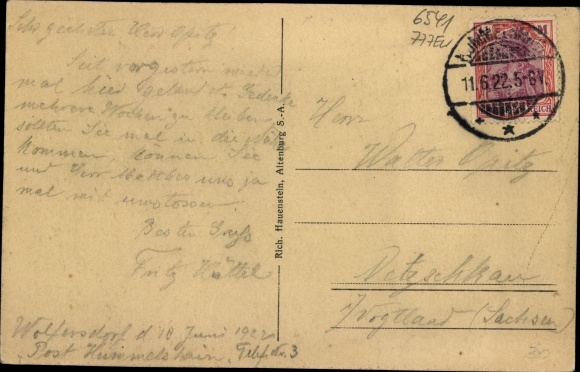 Sehr geehrter Herr Opitz
Seit vorgestern wieder
mal hier gelandet. Gedenke
mehrere Wochen zu bleiben
sollten Sie mal in die Nähe
kommen, können Sie
und Herr Matthes uns ja
mal mit umstossen.
Besten Gruß
Fritz Hüttel
Wolfersdorf d 10 Juni 1922
"Post Hummelshain", Telef. Nr. 3
Rich. Hauenstein, Altenburg S.-A.
6541
777EV
HUMMELSHAIN
11.6.22.5-6V
Herr
Walter Opitz
Netzschkau
Vogtland (Sachsen)